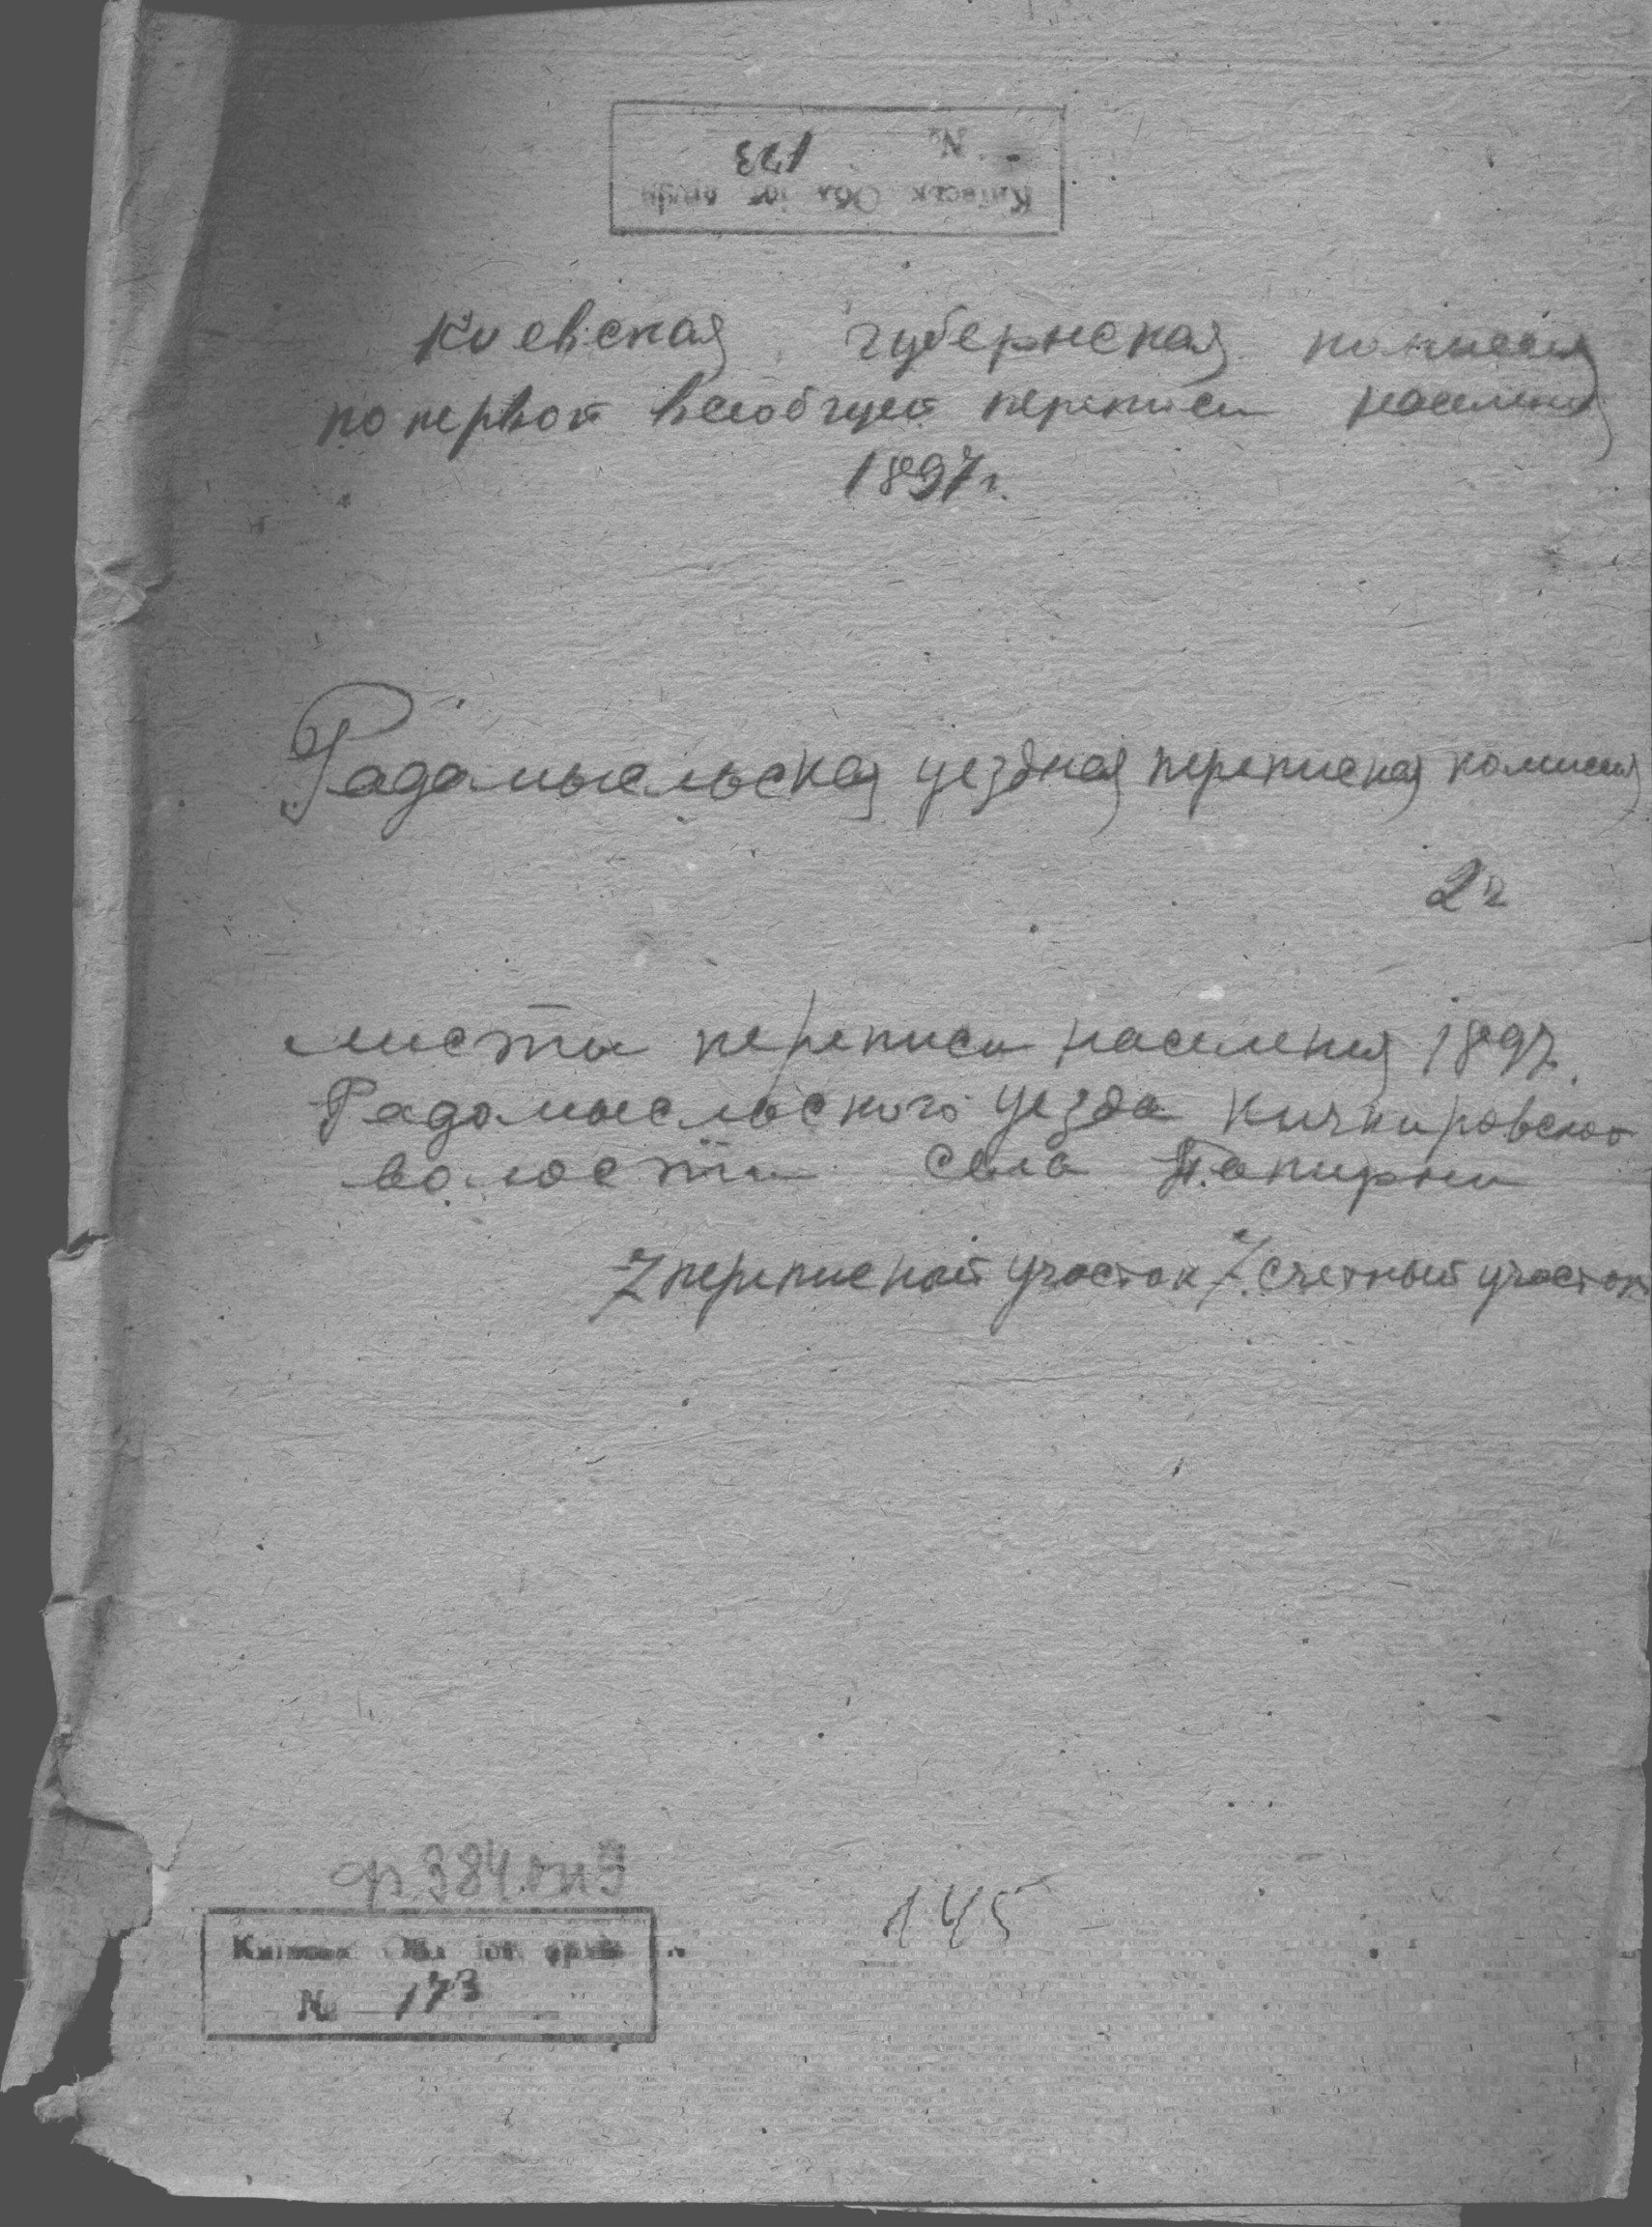 № 173
Київськ Обл іст архів
Киевская губернская комисия
по первой всеобщей переписи населения
1897 г.
Радомысльская уездная переписная комисия
2 ч
листы переписи населения 1897
Радомысльского уезда Кичкировской
волости села Папирни
7 переписной участок 7. счетный участок
ф 384 оп 9
145
Київськ Обл іст архів
№ 173